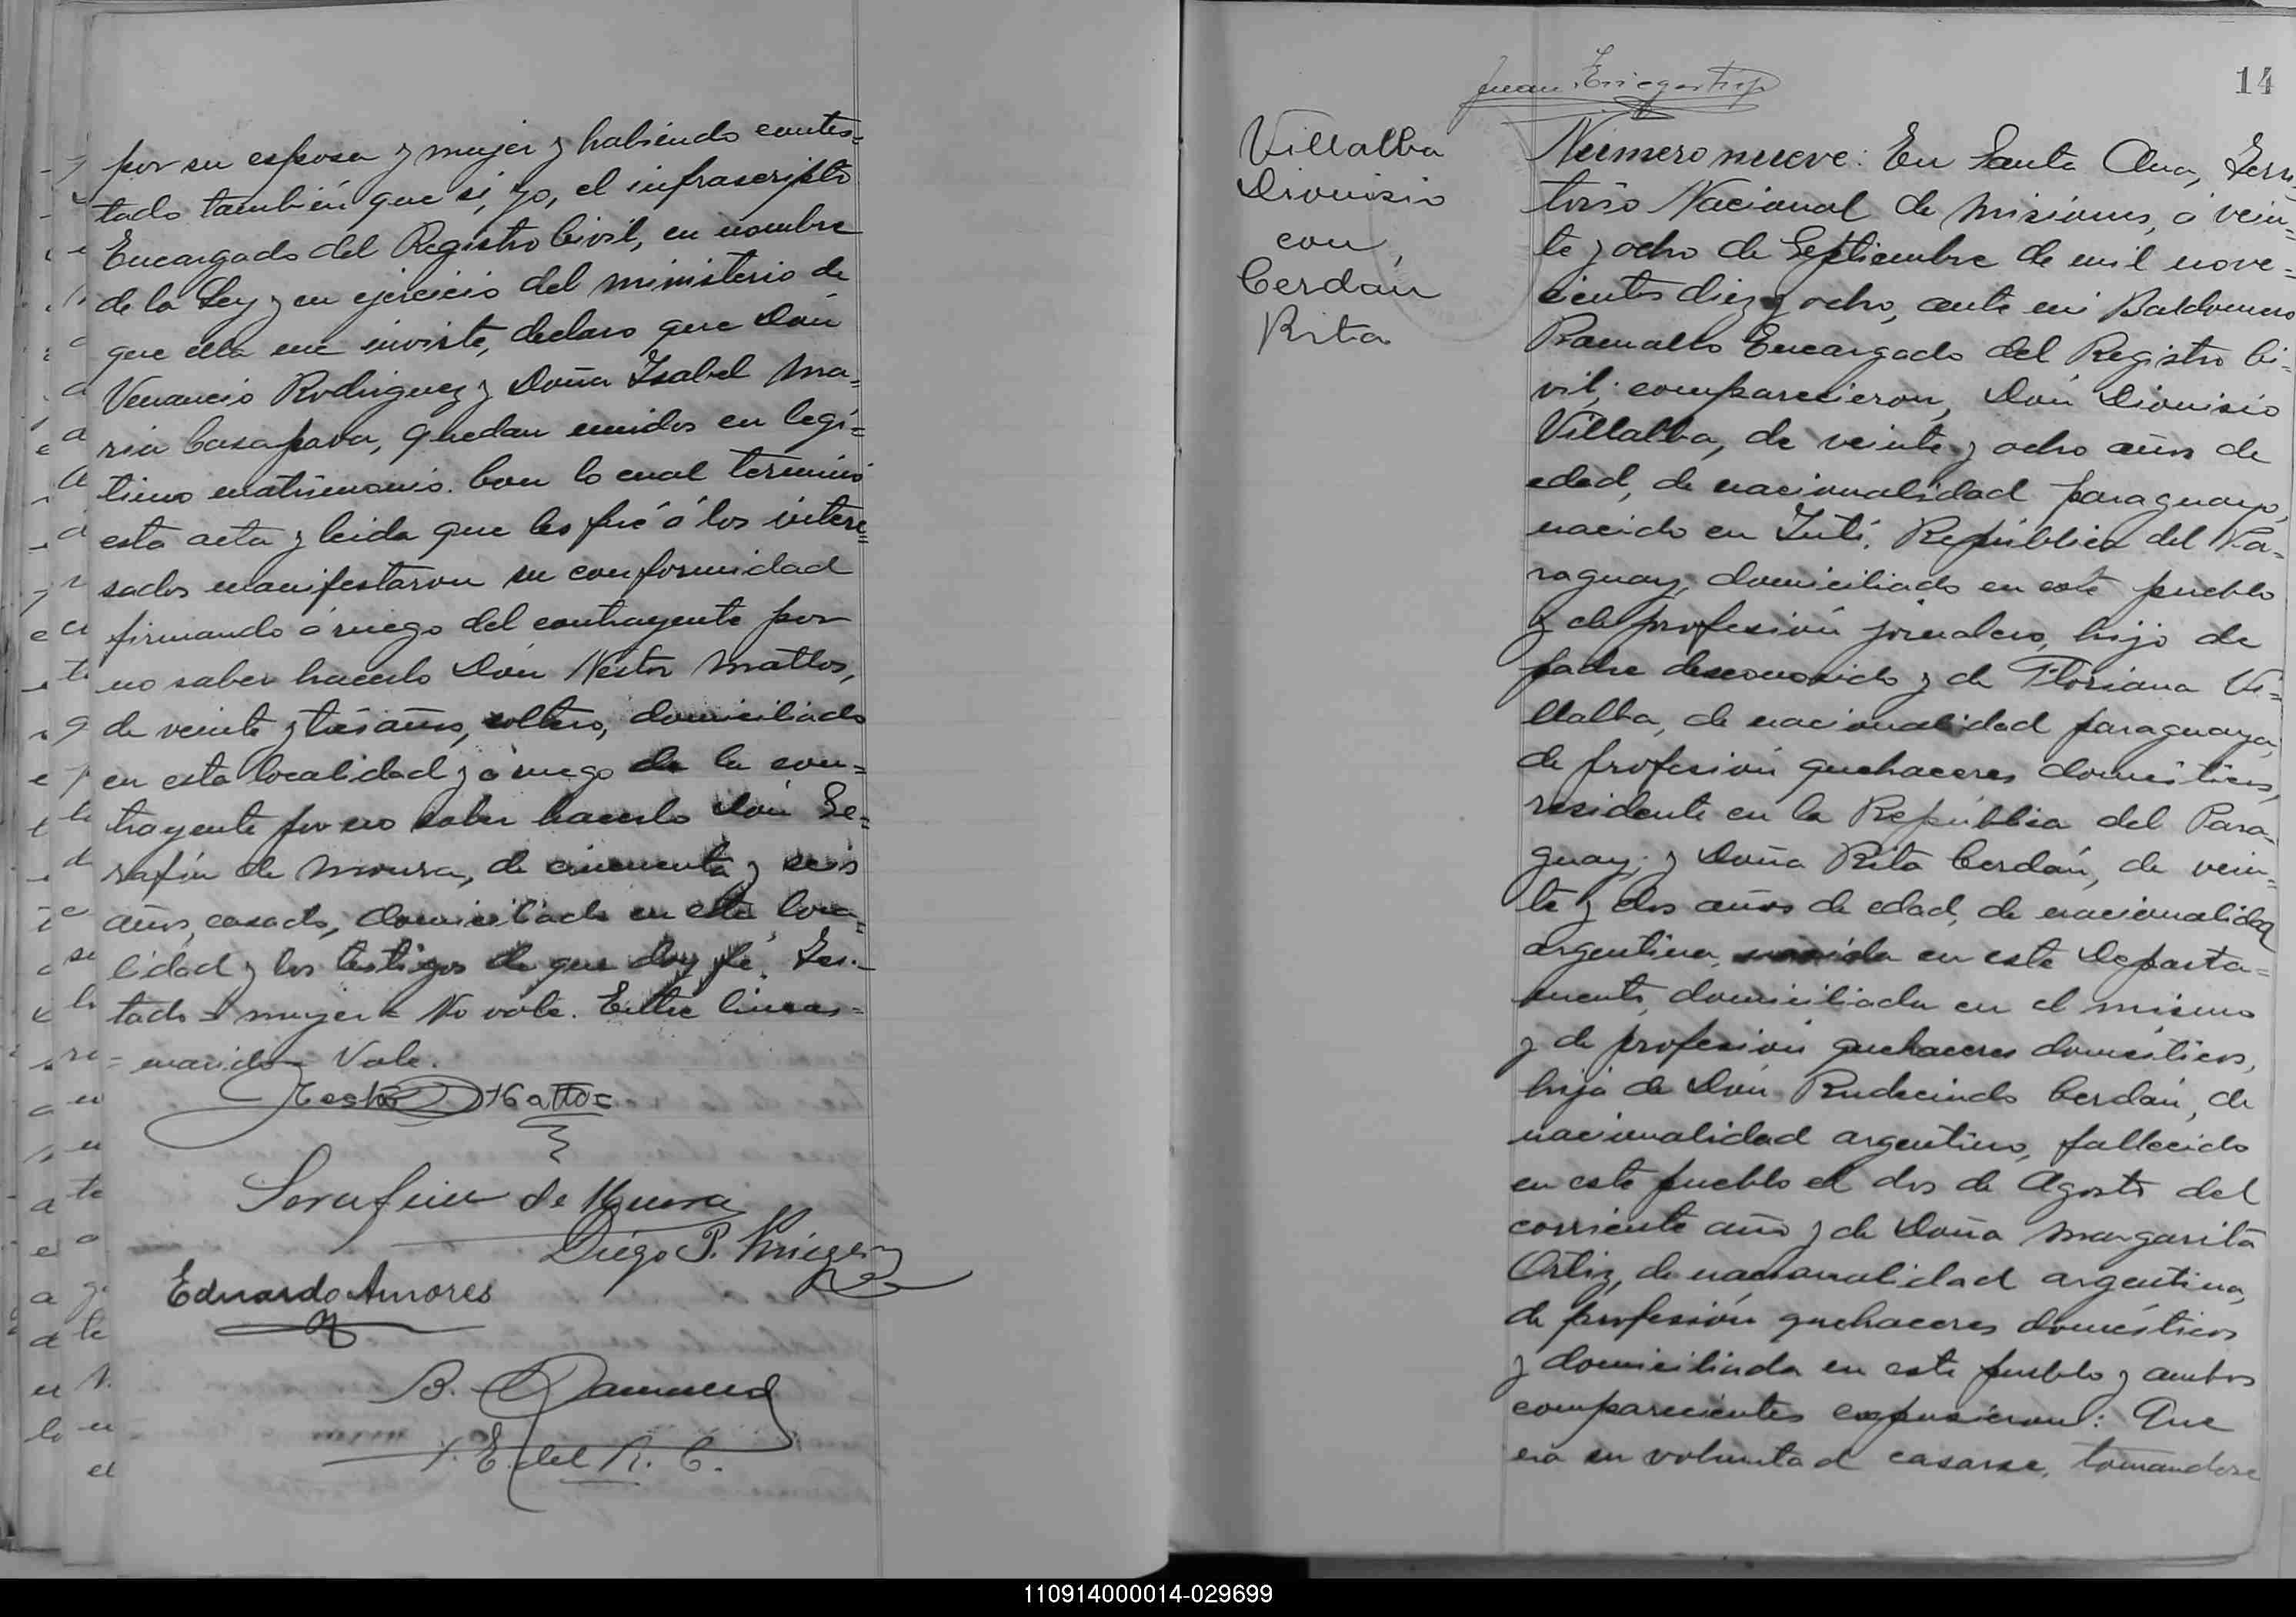 por su esposa y mujer y habiendo contes=
tado también que si, yo, el infrascripto
Encargado del Registro Civil, en nombre
de la Ley y en ejercicio del ministerio de
que ella me inviste, declaro que Don
Venancio Rodriguez y Doña Isabel Ma=
ria Casapava, quedan unidos en legí=
timo matrimonio. Con lo cual terminó
esta acta y leida que les fué á los intere=
sados manifestaron su conformidad
firmando á ruego del contrayente por
no saber hacerlo Don Nestor Mattos,
de veinte y tres años, soltero, domiciliado
en esta localidad y á ruego de la con=
trayente por no saber hacerlo Don Se=
rafin de Moura, de cincuenta y seis
años, casado, domiciliado en esta loca=
lidad y los testigos de que doy fé. Tes=
tado = mujer = No vale. Entre lineas =
= marido = Vale.
Nestor Mattos
Serafin de Moura
Diego P. Krieger
Eduardo Amores
B. Ramallo
E. del R. C.
14
Villalba
Dionisio
con
Cerdán
Rita
Número nueve: En Santa Ana, Terri
torio Nacional de Misiones, á vein=
te y ocho de Septiembre de mil nove=
cientos diez y ocho, ante mi Baldomero
Ramallo Encargado del Registro Ci=
vil; comparecieron, Don Dionisio
Villalba, de veinte y ocho años de
edad, de nacionalidad paraguayo,
nacido en Yutí, República del Pa=
raguay, domiciliado en este pueblo
y de profesión jornalero, hijo de
padre desconocido y de Floriana Vi=
llalba, de nacionalidad paraguaya,
de profesión quehaceres domésticos,
residente en la República del Para=
guay; y Doña Rita Cerdán, de vein=
te y dos años de edad, de nacionalidad
argentina, nacida en este Departa=
mento, domiciliada en el mismo
y de profesión quehaceres domésticos,
hija de Don Rudecindo Cerdán, de
nacionalidad argentino, fallecido
en este pueblo el dos de Agosto del
corriente año y de Doña Margarita
Ortiz, de nacionalidad argentina,
de profesión quehaceres domésticos
y domiciliada en este pueblo y ambos
comparecientes expusieron: Que
era su voluntad casarse, tomandose
110914000014-029699